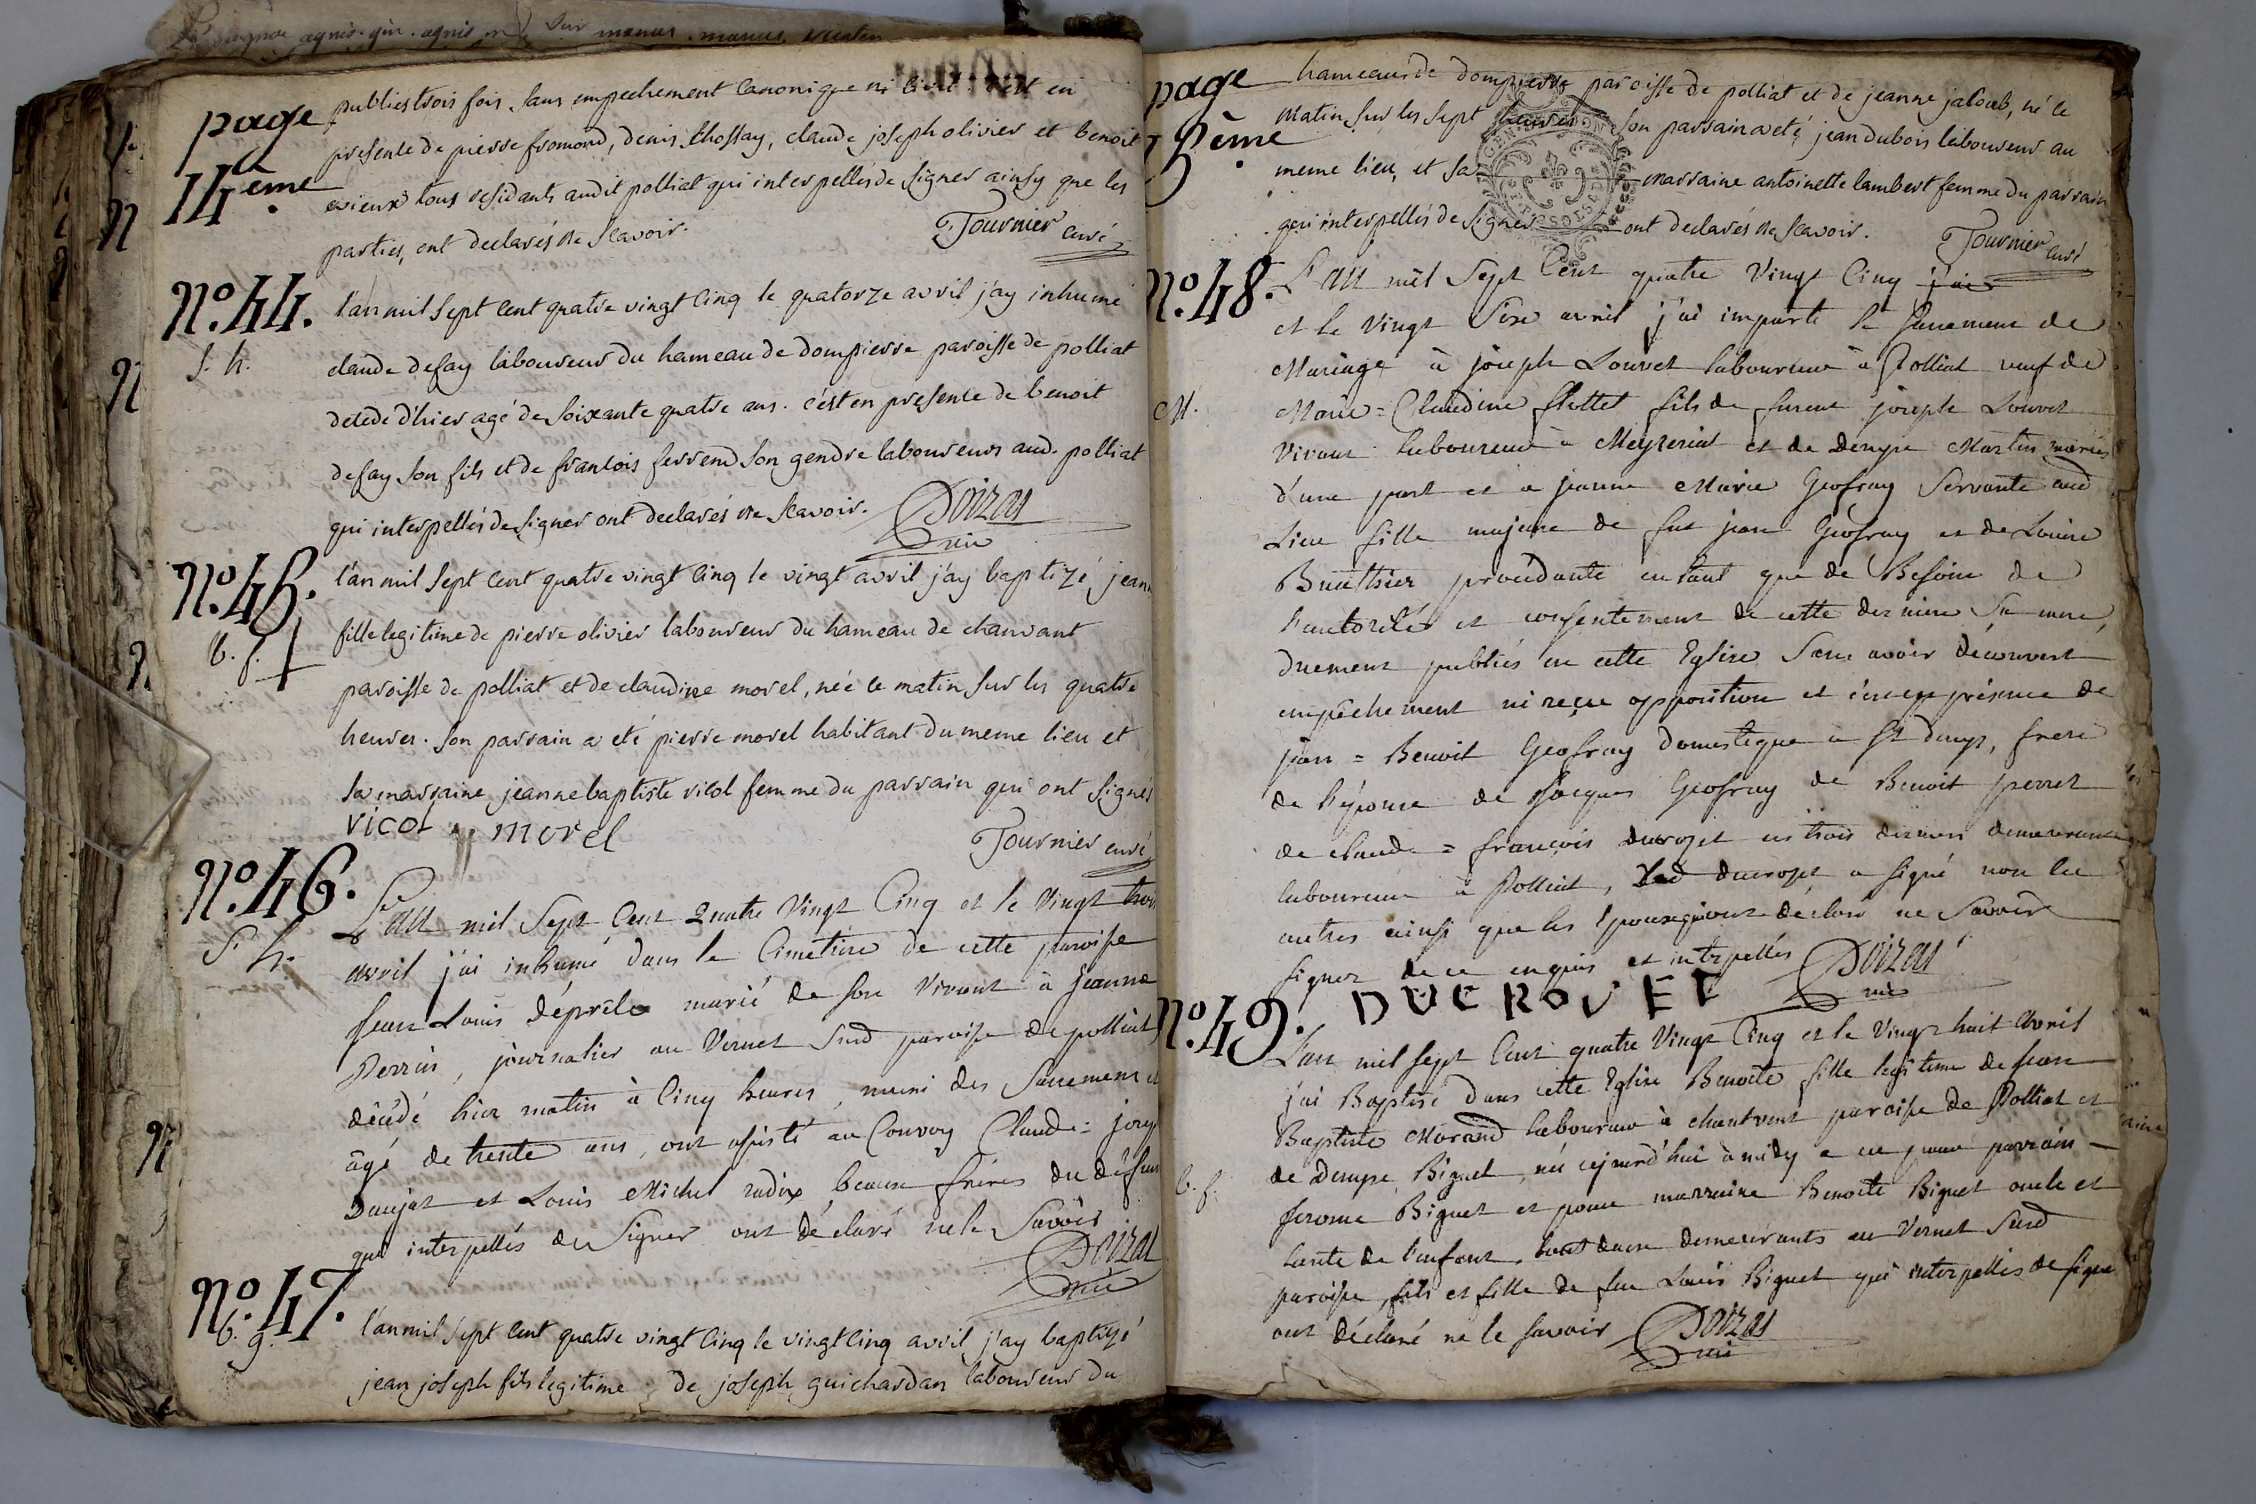 page
14eme
publiés trois fois, sans empechement canonique ni civil c'est en
presence de pierre fromond, denis chossay, claude joseph olivier et benoit
evieux tous residants audit polliat qui interpellés de signer ainsy que les
parties, ont declarés ne scavoir. Tournier curé
No. 44.
l'an mil sept cent quatre vingt cinq le quatorze avril j'ay inhumé
s. h.
claude defay laboureur du hameau de dompierre paroisse de polliat
decedé d'hier agé de soixante quatre ans. c'est en presence de benoit
defay son fils et de francois ferrend son gendre laboureurs aud. polliat
qui interpellés de signer ont declarés ne scavoir. Doizas
vic
No. 45.
l'an mil sept cent quatre vingt cinq le vingt avril j'ay baptizé jeann
b. f.
fille legitime de pierre olivier laboureur du hameau de chanvant
paroisse de polliat et de claudine morel, née ce matin sur les quatre
heures. son parrain a eté pierre morel habitant du meme lieu et
sa marraine jeanne baptiste vicol femme du parrain qui ont signés
vicol morel
Tournier curé
No. 46.
L'an mil Sept Cent Quatre Vingt Cinq et le Vingt trois
S. h.
avril j'ai inhumé dans le Cimetière de cette paroisse
Jean Louis déprêle marié de son vivant à Jeanne
Perrin, journalier au Vernet Sud paroisse de polliat
décédé hier matin à Cinq heures, muni des Sacremens et
âgé de trente ans, ont assisté au Convoy Claude = jose
Daujat et Louis Michel radix beaux frères du défun
qui interpellés de Signer ont déclaré ne le Savoir
Doizas
vic
No. 47.
b. g.
l'an mil sept cent quatre vingt cinq le vingt cinq avril j'ay baptizé
jean joseph fils legitime de joseph guichardan laboureur du
page
hameau de dompierre paroisse de polliat et de jeanne jacoub, né ce
matin sur les sept heures son parrain a eté jean dubois laboureur au
meme lieu, et sa marraine antoinette lambert femme du parrain
qui interpellés de signer ont declarés ne scavoir. Tournier curé
No. 48.
L'an mil Sept Cent quatre Vingt Cinq j'ai
et le Vingt Six avril j'ai imparti le Sacrement de
Mariage à joseph Louvet laboureur à Polliat veuf de
M.
Marie = Claudine flottet fils de furent joseph Louvet
Vivant laboureur à Meyzeriat et de Denyse Martin mariés
d'une part et à jeanne Marie Geofray Servante aud
Lieu fille majeure de fut jean Geofray et de Louise
Buathier procédante en tant que de Besoin de
l'autorité et consentement de cette dernière Sa mere,
duement publiés en cette Eglise Sans avoir découvert
empêchement ni reçu opposition et ce en présence de
jean = Benoit Geofray domestique à St denys, frere
de l'épouse de Jacques Geofray de Benoit perret
de claude = françois ducroyet les trois derniers demeurants
laboureurs à Polliat, Led ducroyet a signé non les
autres ainsi que les Epoux qui ont déclaré ne Savoir
signer de ce enquis et interpellés Doizas
vic
DUCROUET
No. 49.
L'an mil sept Cent quatre Vingt Cinq et le Vingt huit Avril
j'ai Baptisé dans cette Eglise Benoîte fille legitime de Jean
Baptiste Morand laboureur à chantvent paroisse de Polliat et
b. f.
de Denyse Biguet, née cejourd'hui à midy a eu pour parrain
Jerome Biguet et pour marraine Benoîte Biguet oncle et
tante de l'enfant, tout deux demeurants au Vernet Sud
paroisse, fils et fille de feu Louis Biguet qui interpellés de signer
ont déclaré ne le savoir Doizas
vic